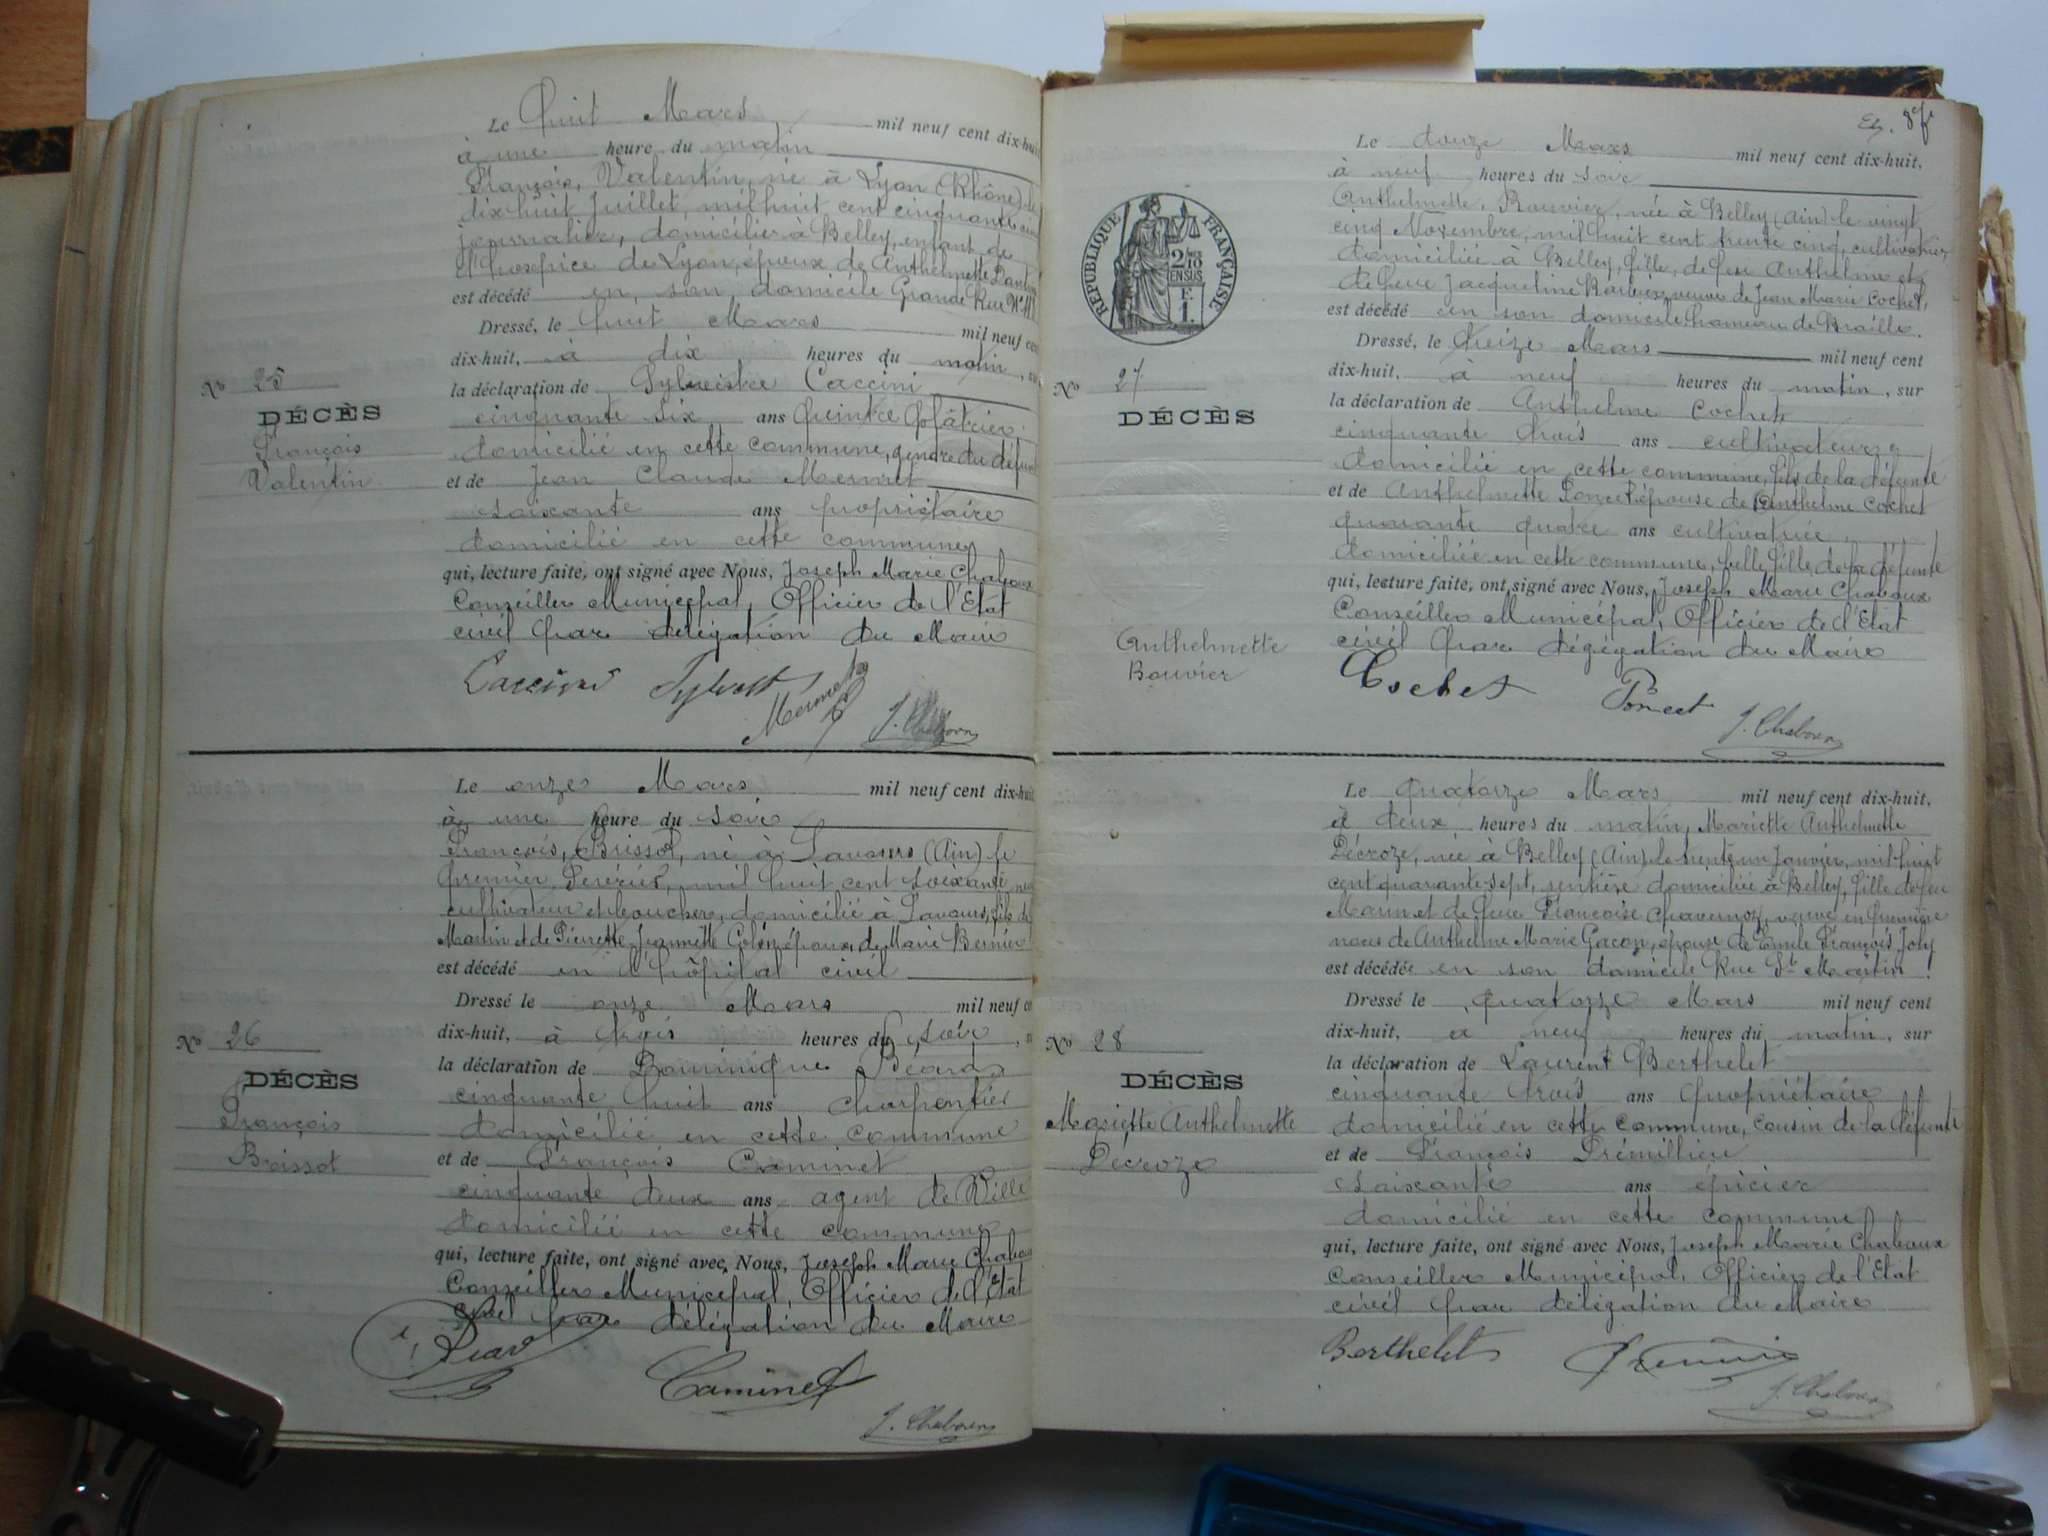 Le huit Mars mil neuf cent dix-huit
à une heure du matin
François, Valentin, né à Lyon (Rhône) le
dix huit Juillet, mil huit cent cinquante cinq
journalier, domicilié à Belley, enfant de
l'hospice de Lyon, époux de Anthelmette
est décédé en son domicile Grande Rue
Dressé, le huit Mars mil neuf cent
dix-huit, à dix heures du matin,
la déclaration de Sylvestre Caccini
cinquante six ans peintre plâtrier
domicilié en cette commune, gendre du défunt
et de Jean Claude Mermet
soixante ans propriétaire
domicilié en cette commune
qui, lecture faite, ont signé avec Nous, Joseph Marie Chaboux
Conseiller Municipal, Officier de l'Etat
civil par délégation du Maire
Caccini Sylvest
Mermet
J. Chaboux
No 25
DÉCÈS
François
Valentin
Le onze Mars mil neuf cent dix-huit
à une heure du soir
François, Brissot, né à Lavours (Ain) le
premier Février, mil huit cent soixante neuf
cultivateur et boucher, domicilié à Lavours, fils de
Martin et de Pierrette Jeannette époux de Marie Bernier
est décédé en l'hôpital civil
Dressé le onze Mars mil neuf ce
dix-huit, à trois heures du soir
la déclaration de Dominique
cinquante huit ans charpentier
domicilié en cette commune
et de François Caminet
cinquante deux ans agent de Ville
domicilié en cette commune
qui, lecture faite, ont signé avec Nous, Joseph Marie Chaboux
Conseiller Municipal, Officier de l'Etat
civil par délégation du Maire
Caminet
J. Chaboux
No 26
DÉCÈS
François
Brissot
87
Le douze Mars mil neuf cent dix-huit,
à neuf heures du soir
Anthelmette, Bouvier, née à Belley (Ain) le vingt
cinq Novembre, mil huit cent trente cinq, cultivatrice
domiciliée à Belley, fille, de feu Anthelme et
de feue Jacqueline veuve de Jean Marie Cochet,
est décédé en son domicile hameau de Brailles.
Dressé, le treize Mars mil neuf cent
dix-huit, à neuf heures du matin, sur
la déclaration de Anthelme Cochet
cinquante trois ans cultivateur
domicilié en cette commune, fils de la défunte
et de Anthelmette Poncet épouse de Anthelme Cochet
quarante quatre ans cultivatrice
domiciliée en cette commune, belle fille de la défunte
qui, lecture faite, ont signé avec Nous, Joseph Marie Chaboux
Conseiller Municipal, Officier de l'Etat
civil par dégégation du Maire
Cochet Poncet
J. Chaboux
RÉPUBLIQUE FRANÇAISE
2/10 EN SUS
1 F.
No 27
DÉCÈS
Anthelmette
Bouvier
Le quatorze Mars mil neuf cent dix-huit,
à deux heures du matin, Mariette Anthelmette
Décroze, née à Belley (Ain) le trente un Janvier, mil huit
cent quarante-sept, rentière domiciliée à Belley, fille de feu
Marin et de feue Françoise Chavernoz, veuve en première
noces de Anthelme Marie Gacon, épouse de Emile François Joly
est décédée en son domicile Rue St Martin
Dressé le quatorze Mars mil neuf cent
dix-huit, à neuf heures du matin, sur
la déclaration de Laurent Berthelet
cinquante trois ans propriétaire
domicilié en cette commune, cousin de la défunte
et de François Prémillieu
soixante ans épicier
domicilié en cette commune
qui, lecture faite, ont signé avec Nous, Joseph Marie Chaboux
Conseiller Municipal, Officier de l'Etat
civil par délégation du Maire
Berthelet
J. Chaboux
No 28
DÉCÈS
Mariette Anthelmette
Décroze